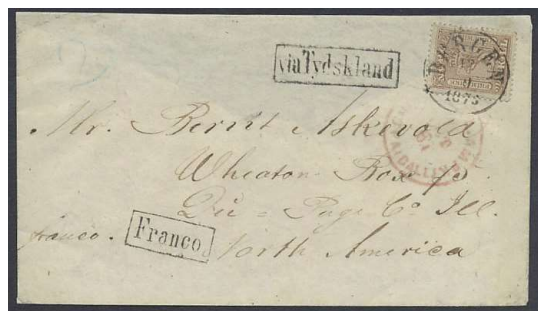 via Tydskland
BERGEN
1875
Mr. Bernt Askevold
Wheaton Box
Du = Page Co Ill.
Franco.
franco. North America